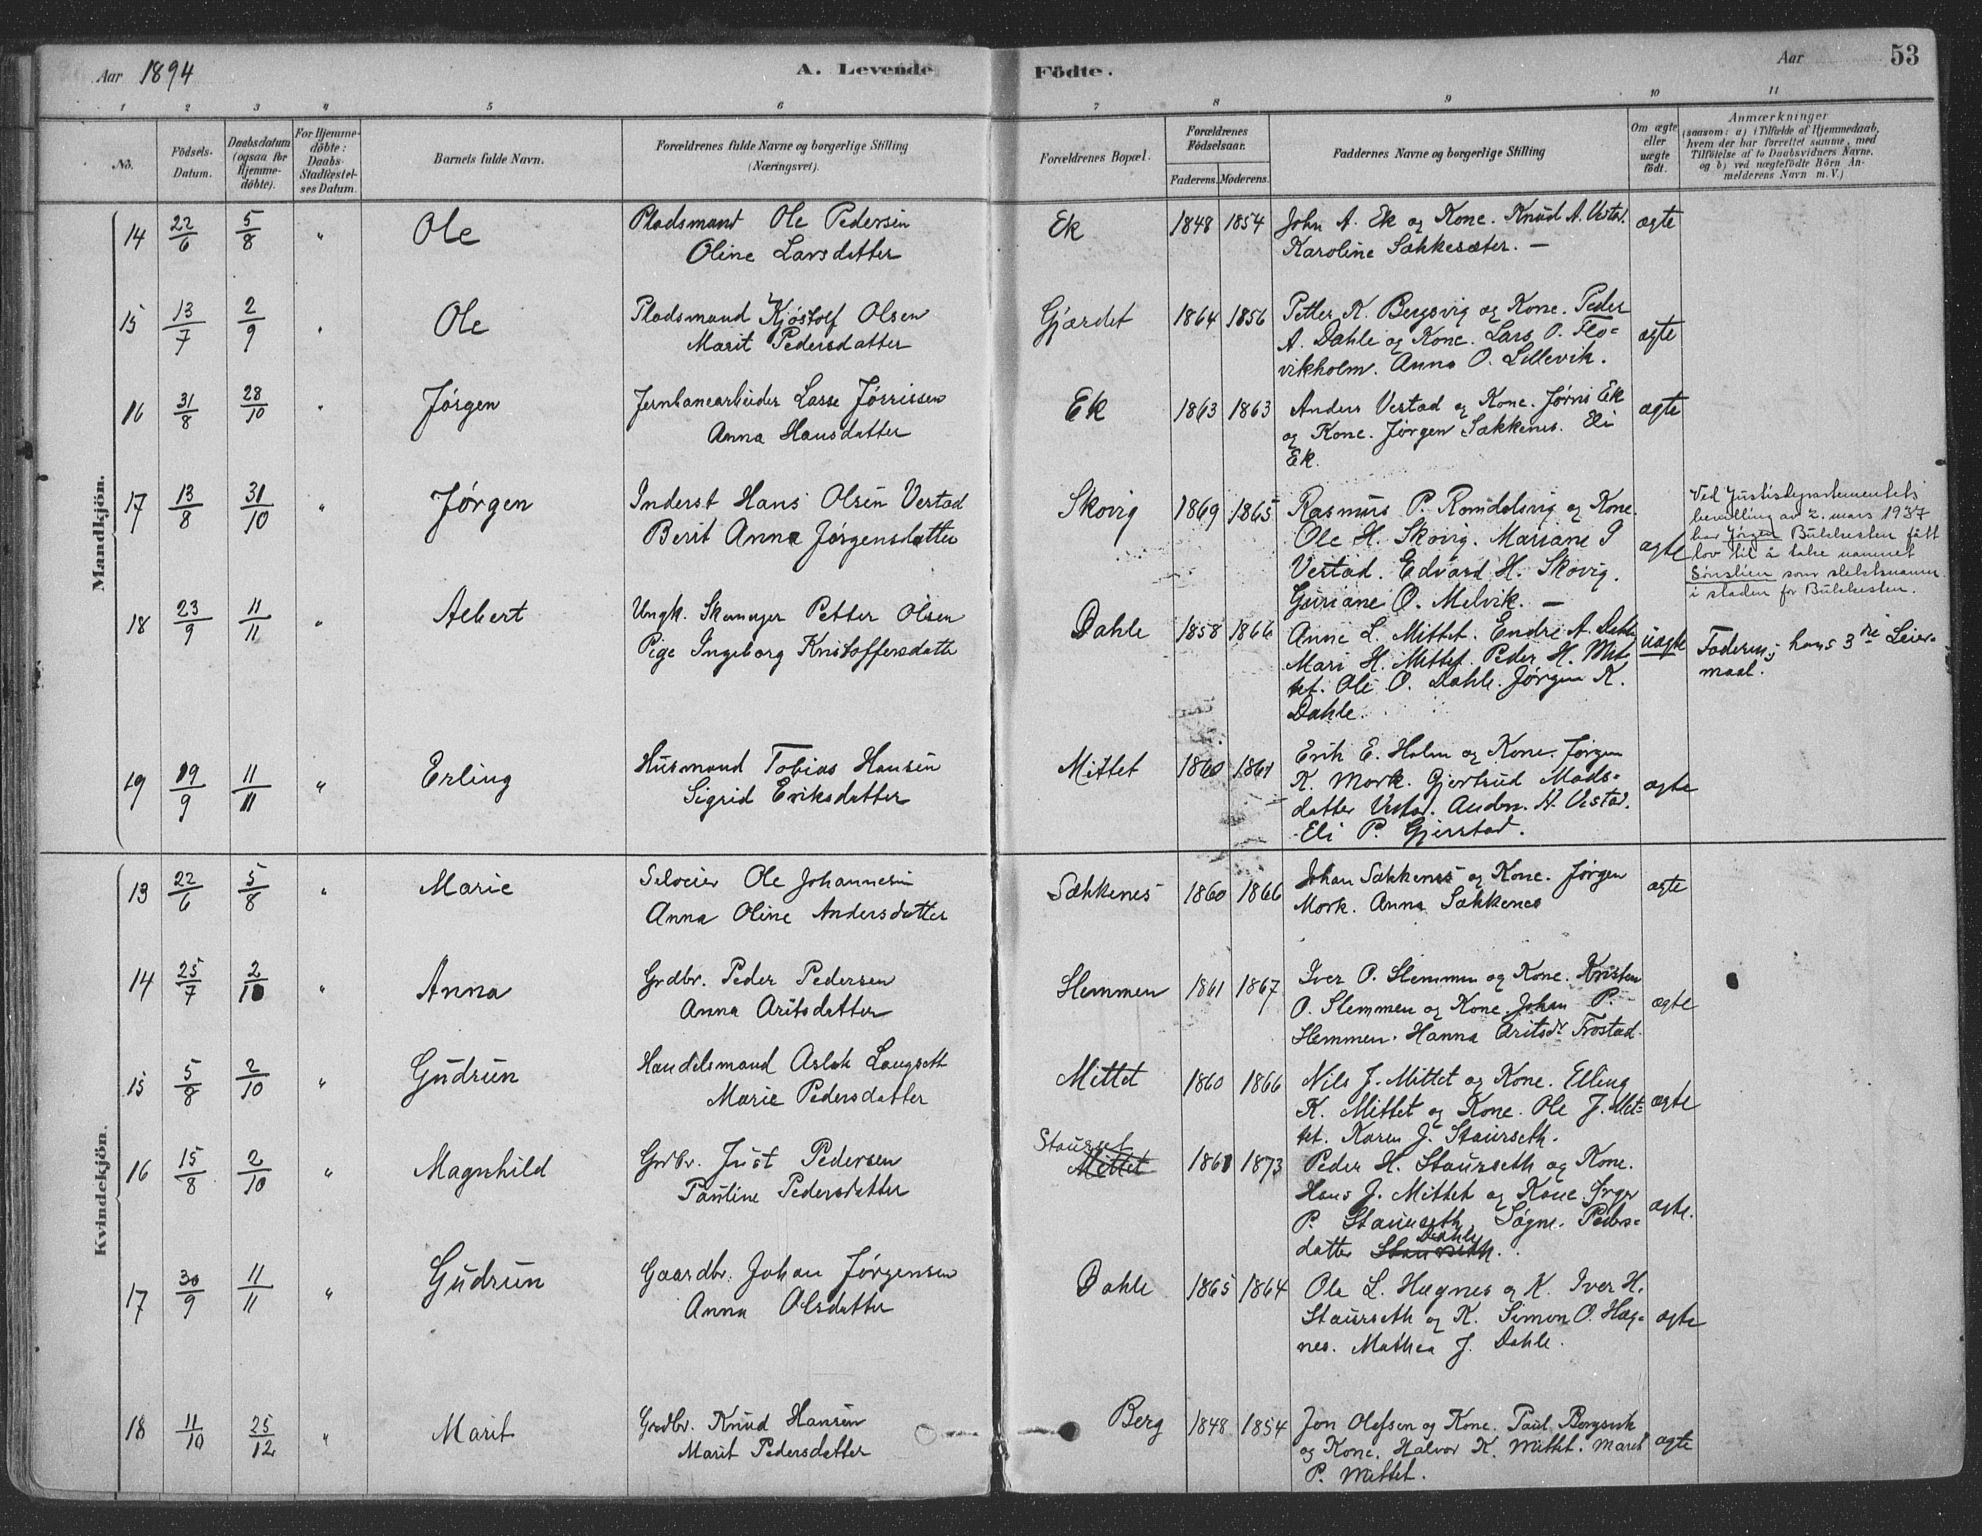 Aar 1894 A. Levende Födte. Aar 53
1 2 3 4 5 6 7 8 9 10 11
No.
Födsels-
Datum.
Daabsdatum
(ogsaa for
Hjemme-
döbte).
For Hjemme-
döbte:
Daabs-
Stadfæstel-
ses Datum.
Barnets fulde Navn.
Forældrenes fulde Navne og borgerlige Stilling
(Næringsvei).
Forældrenes Bopæl.
Forældrenes
Födselsaar.
Faderens. Moderens.
Faddernes Navne og borgerlige Stilling
Om ægte
eller
uægte
födt.
Anmærkninger
(saasom: a) i Tilfælde af Hjemmedaab,
hvem der har forrettet samme, med
Tilföielse af to Daabsvidners Navne,
og b) ved uægtefödte Börn An-
melderens Navn m. V.)
Mandkjön.
14 22/6 5/8 " Ole Pladsmand Ole Pedersen Ek 1848 1854 John A. Ek og Kone. Knud A. Vestad. ægte
Oline Larsdatter Karoline Sækkesæter. —
15 13/7 2/9 " Ole Pladsmand Kjöstolf Olsen Gjærdet 1864 1856 Petter K. Bergsvig og Kone. Peder ægte
Marit Pedersdatter A. Dahle og Kone. Lars O. Flo-
vikholm. Anna O. Lillevik.
16 31/8 28/10 " Jørgen Jernbanearbeider Lasse Jørrissen Ek 1863 1863 Anders Vestad og Kone. Jørris Ek ægte
Anna Hansdatter og Kone. Jørgen Sækkenes. Eli
Ek.
17 13/8 31/10 " Jørgen Inderst Hans Olsen Vestad Skovig 1869 1865 Rasmus P. Romdalsvig og Kone. ægte
Berit Anna Jørgensdatter Ole H. Skovig. Mariane J
Vestad. Edvard H. Skovig.
Guriane O. Melvik. —
Ved Justisdepartementets
bevilling av 2. mars 1937
har Jørgen Bulkhesten fått
lov til å take namnet
Sønslien som slektsnamn
i staden for Bulkhesten.
18 23/9 11/11 " Albert Ungk. Skomager Petter Olsen Dahle 1858 1866 Anne L. Mittet. Endre A. Dahle uægte Faderens, hans 3die Leier-
Pige Ingeborg Kristoffersdatter Mari H. Mittet. Peder H. Mit- maal.
tet. Ole O. Dahle. Jørgen K.
Dahle.
19 19/9 11/11 " Erling Husmand Tobias Hansen Mittet 1860 1861 Erik E. Holm og Kone. Jørgen ægte
Sigrid Eriksdatter K. Mork. Gjertrud Mads-
datter Vestad. Anders A. Vestad.
Eli P. Gjerstad.
Kvindekjön.
13 22/6 5/8 " Marie Selveier Ole Johannesen Sækkenes 1860 1866 Johan Sækkenes og Kone. Jørgen ægte
Anna Oline Andersdatter Mork. Anna Sækkenes
14 25/7 2/10 " Anna Grdbr. Peder Pedersen Slemmen 1861 1867 Iver O. Slemmen og Kone. Kristen ægte
Anna Aritsdatter O. Slemmen og Kone. Johan P.
Slemmen. Hanna Aritsdr Frostad.
15 5/8 2/10 " Gudrun Handelsmand Aslak Langseth Mittet 1860 1866 Nils J. Mittet og Kone. Elling ægte
Marie Pedersdatter K. Mittet og Kone. Ole J. Mit-
tet. Karen J. Staurseth.
16 15/8 2/10 " Magnhild Grdbr. Just Pedersen Staurset Mittet 1861 1873 Peder H. Staurseth og Kone. ægte.
Pauline Pedersdatter Hans J. Mittet og Kone. Inger
P. Staurseth. Søgne. Peders-
datter Staurseth Dahle.
17 30/9 11/11 " Gudrun Gaardbr. Johan Jørgensen Dahle 1865 1864 Ole L. Hagnes og K. Iver H. ægte
Anna Olsdatter Staurseth og K. Simon O. Hag-
nes. Mathea J. Dahle.
18 11/10 25/12 " Marit Grdbr. Knud Hansen Berg 1848 1854 Jon Olefsen og Kone. Paul Bergsvik ægte
Marit Pedersdatter og Kone. Halvor K. Mittet. Marit
P. Mittet.